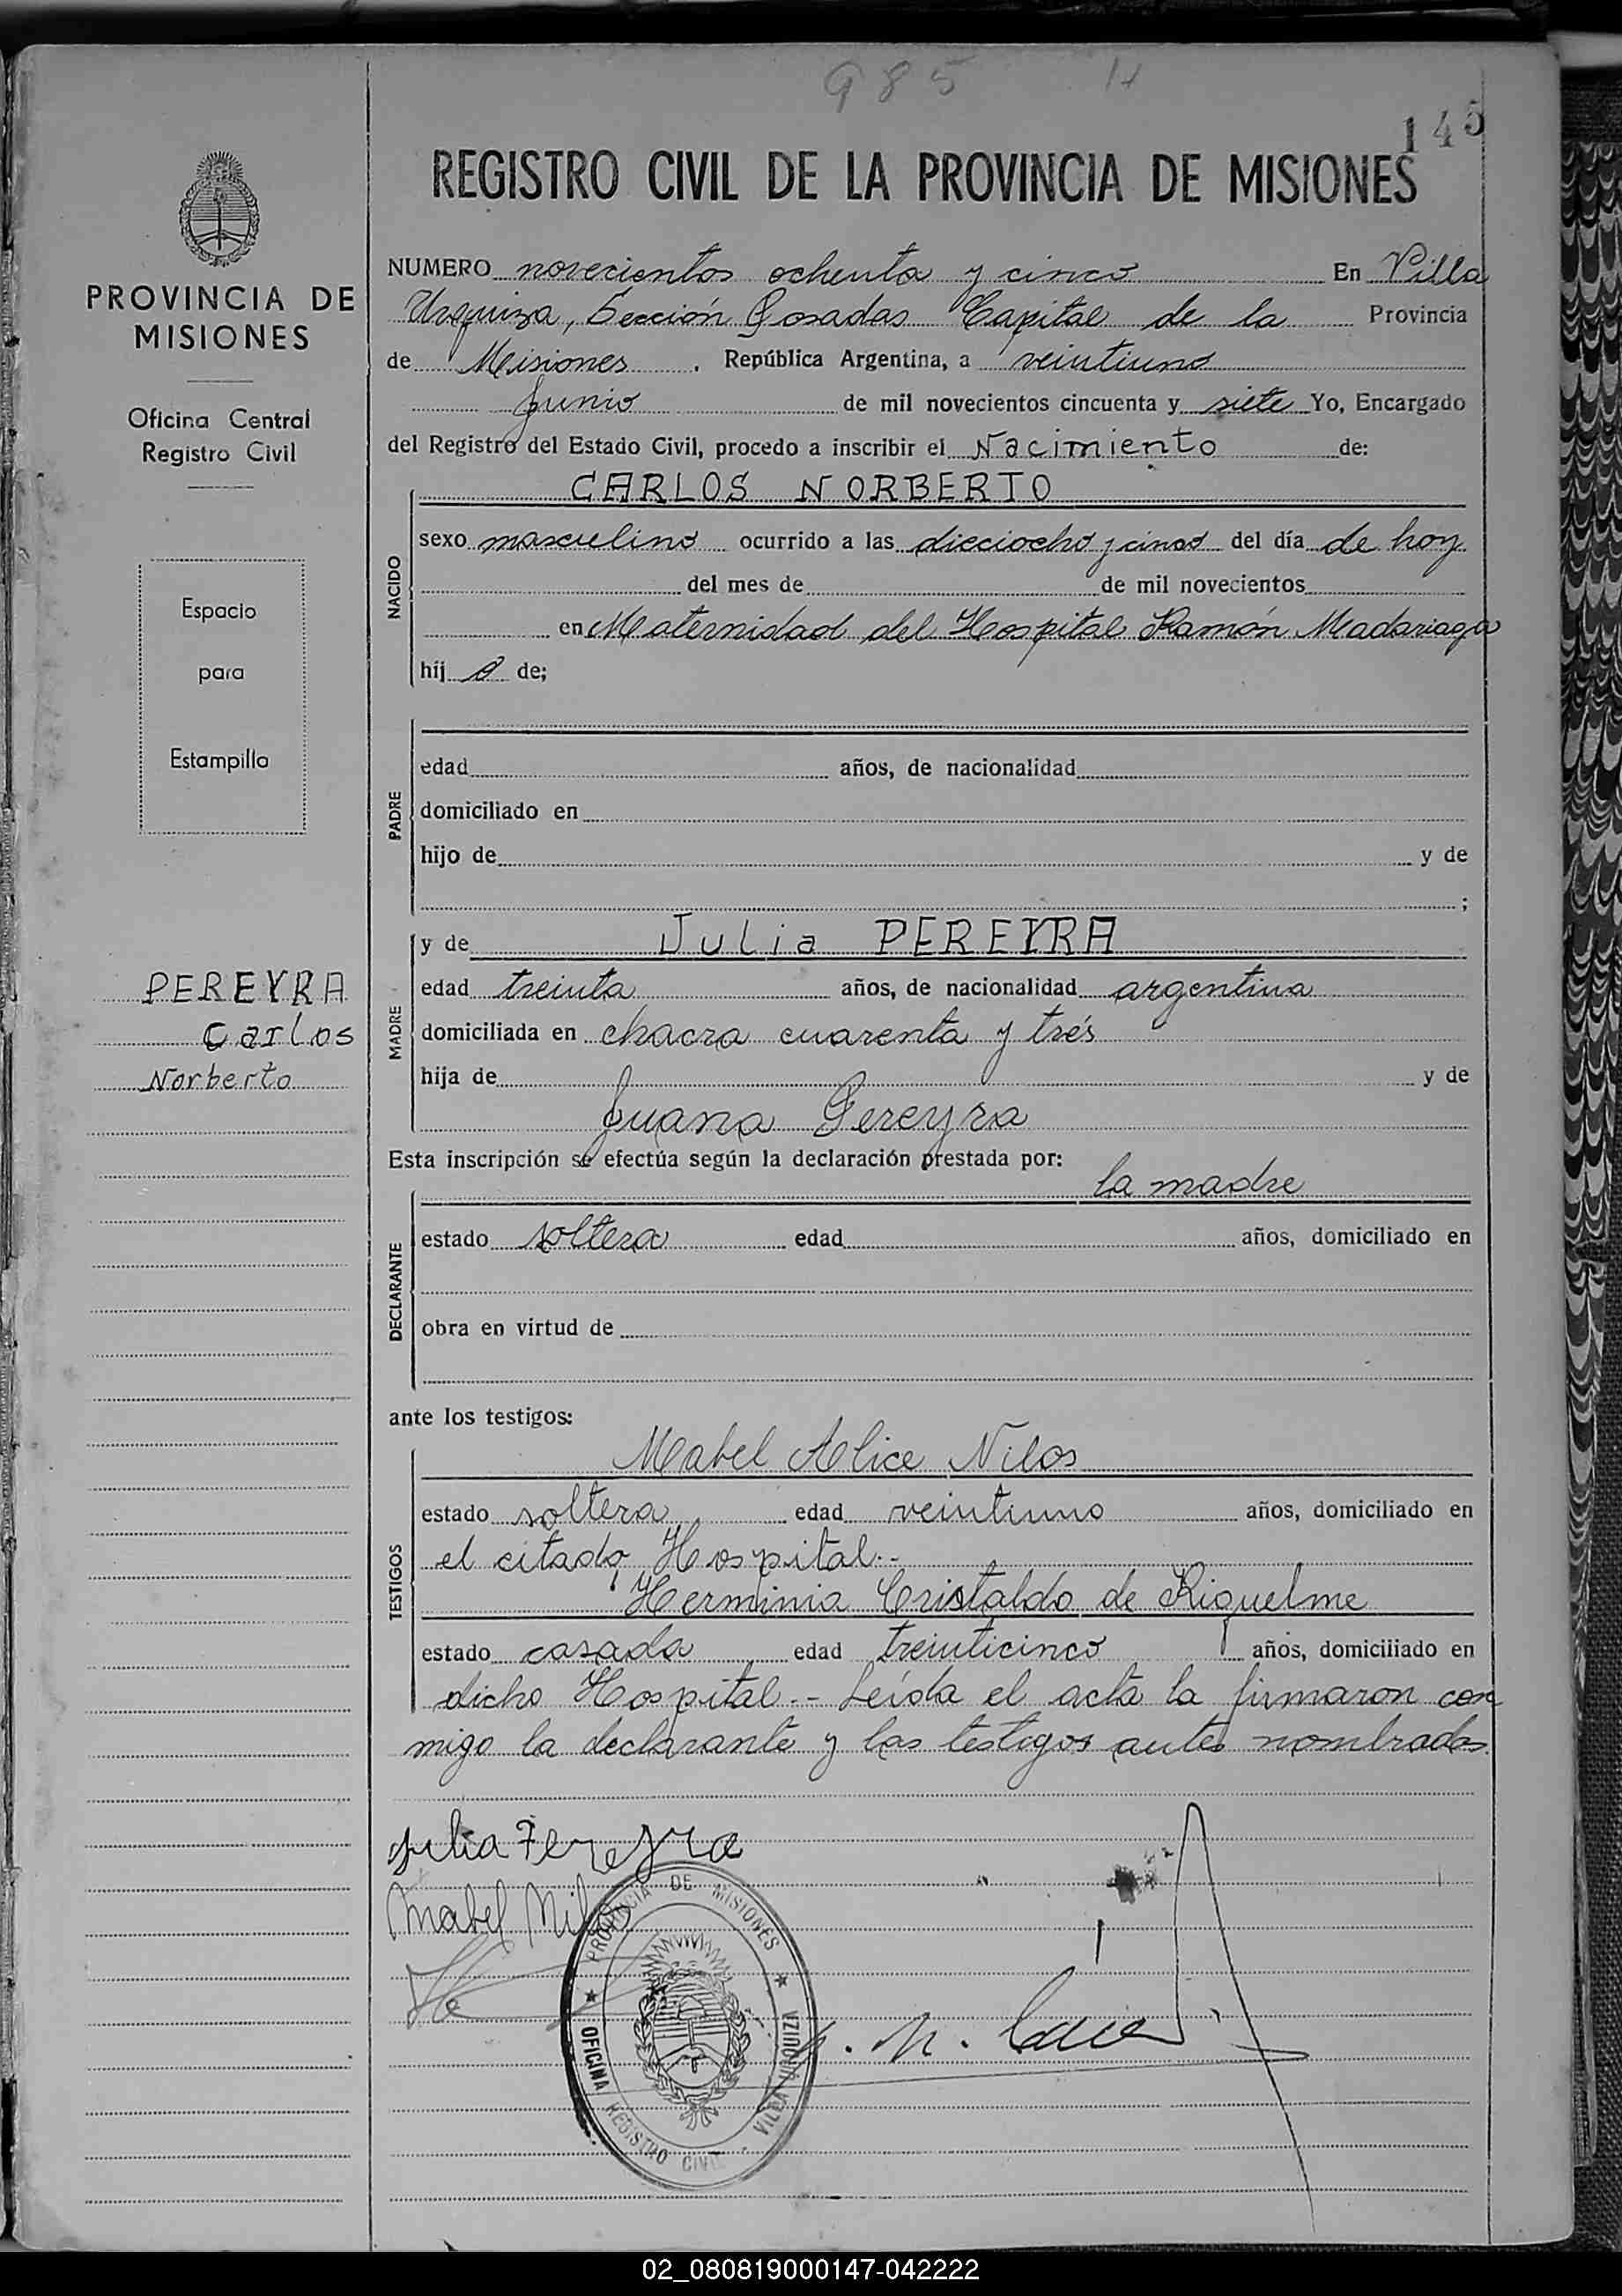 985 H
145
REGISTRO CIVIL DE LA PROVINCIA DE MISIONES
PROVINCIA DE
MISIONES
Oficina Central
Registro Civil
Espacio
para
Estampilla
PEREYRA
Carlos
Norberto
NUMERO novecientos ochenta y cinco En Villa
Urquiza, Sección Posadas Capital de la Provincia
de Misiones . República Argentina, a veintiuno
Junio de mil novecientos cincuenta y siete Yo, Encargado
del Registro del Estado Civil, procedo a inscribir el Nacimiento de:
NACIDO
CARLOS NORBERTO
sexo masculino ocurrido a las dieciocho y cinco del día de hoy
del mes de de mil novecientos
en Maternidad del Hospital Ramón Madariaga
hij o de;
PADRE
edad años, de nacionalidad
domiciliado en
hijo de y de
;
MADRE
y de Julia PEREYRA
edad treinta años, de nacionalidad argentina
domiciliada en chacra cuarenta y trés
hija de y de
Juana Pereyra
Esta inscripción se efectúa según la declaración prestada por:
DECLARANTE
la madre
estado soltera edad años, domiciliado en
obra en virtud de
ante los testigos:
TESTIGOS
Mabel Alice Nilos
estado soltera edad veintiuno años, domiciliado en
el citado Hospital.-
Herminia Cristaldo de Riquelme
estado casada edad treinticinco años, domiciliado en
dicho Hospital.- Leída el acta la firmaron con
migo la declarante y los testigos antes nombrados.
Julia Pereyra
Mabel Nilos
PROVINCIA DE MISIONES
OFICINA REGISTRO CIVIL VILLA URQUIZA
02_080819000147-042222